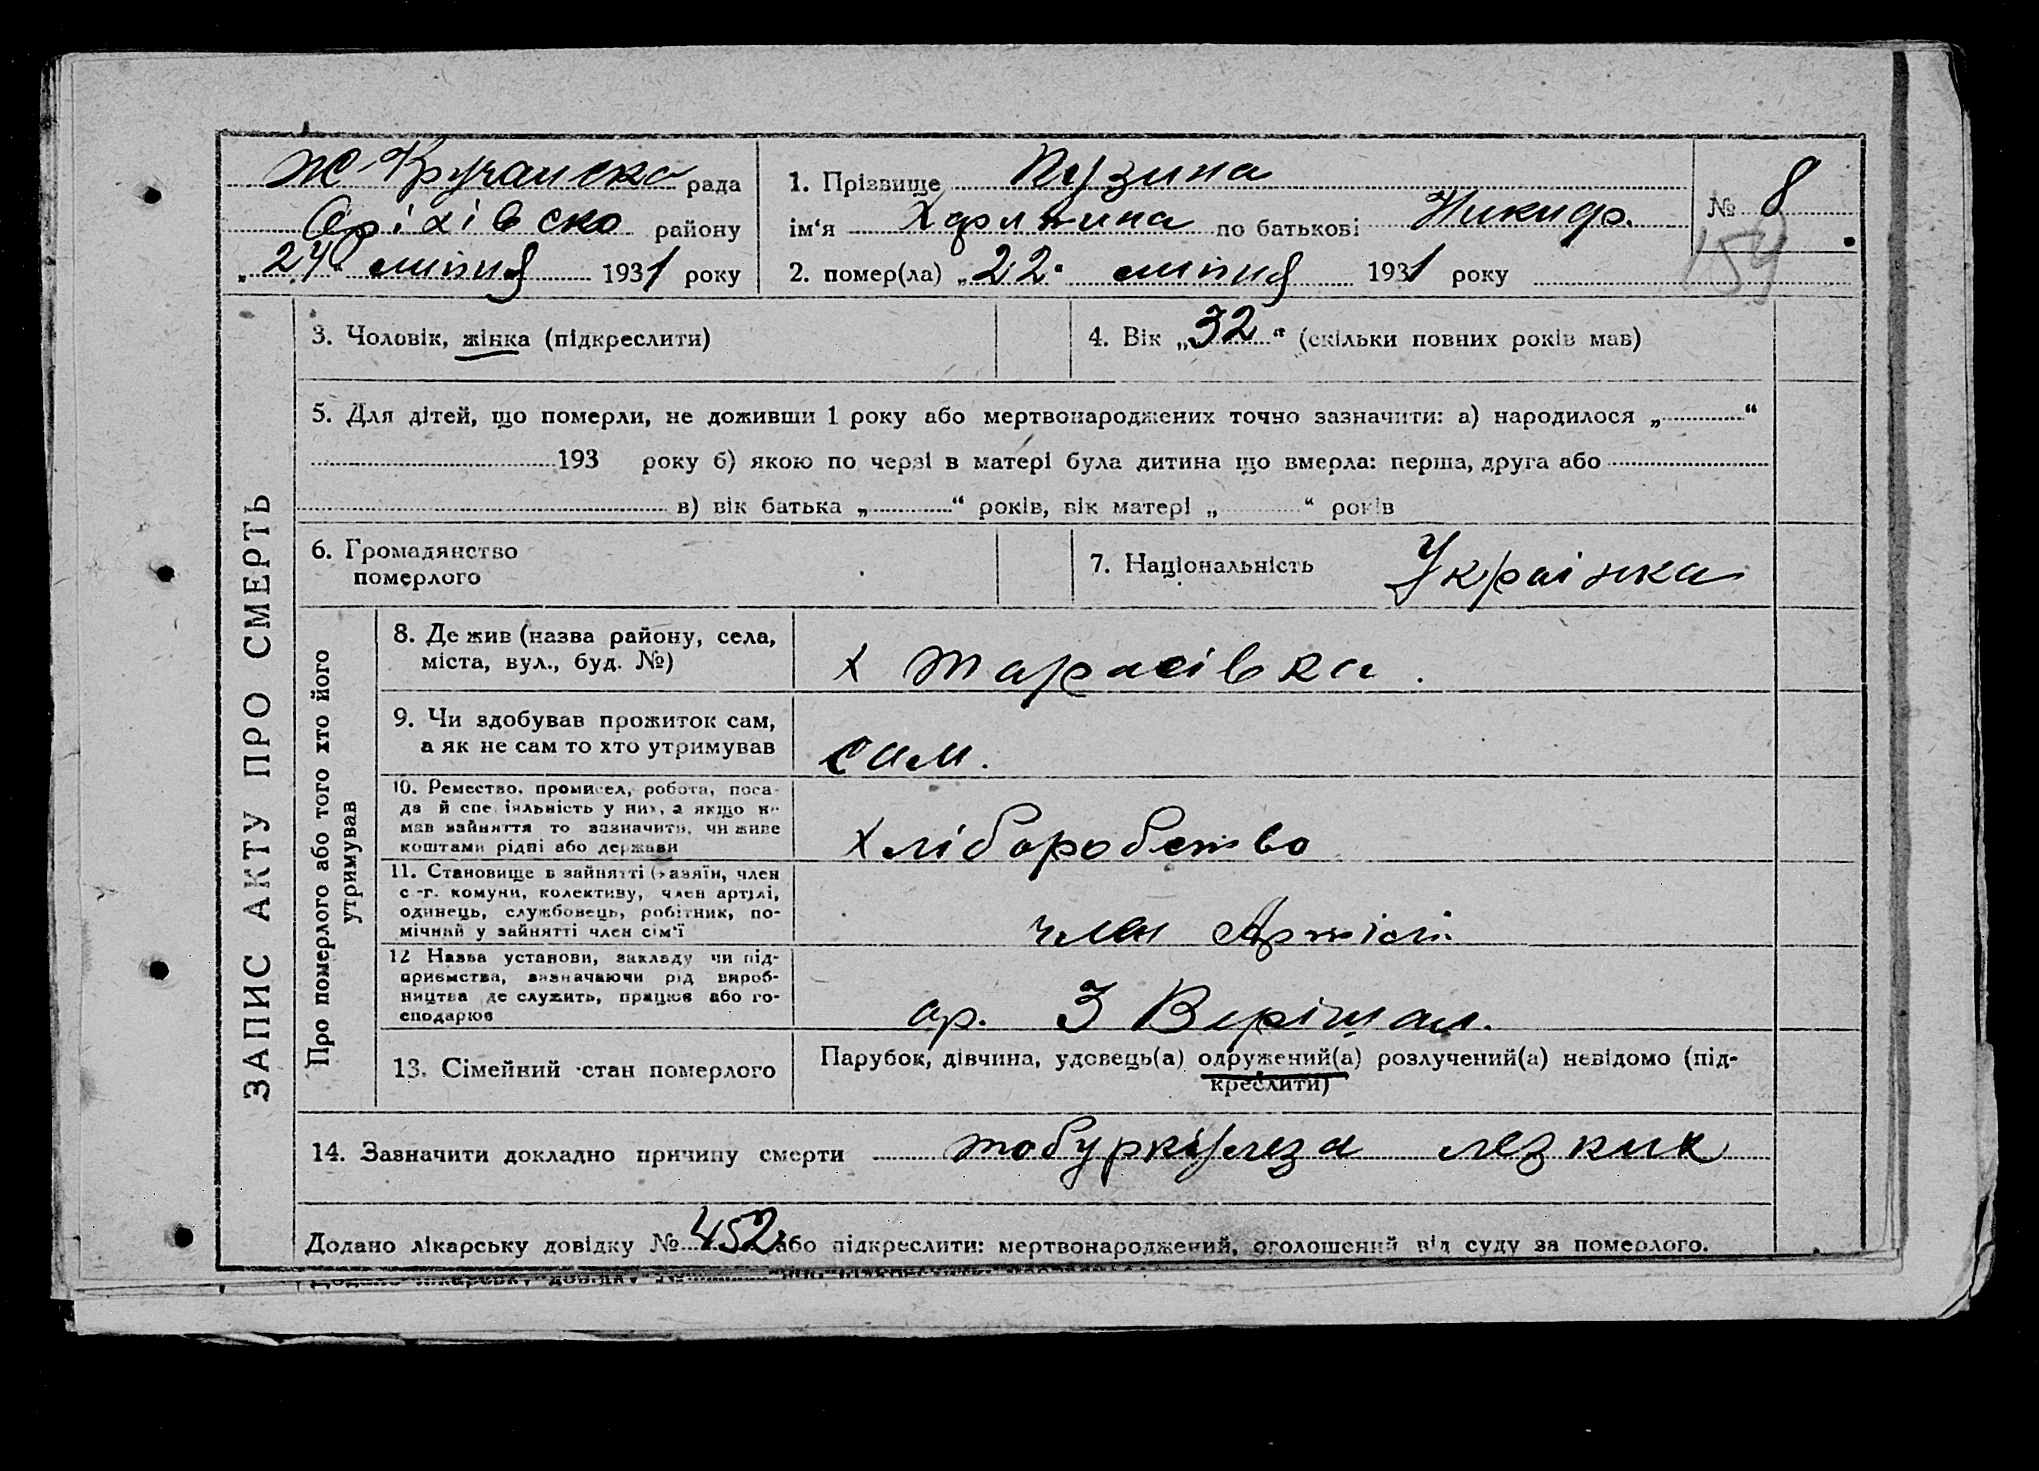 Ж Кручанска рада
Оріхівско району
„24“ липня 1931 року
1. Прізвище Пузина
ім‘я Харитина по батькові Никифр.
2. помер(ла) „22“ липня 1931 року
№ 8
159
ЗАПИС АКТУ ПРО СМЕРТЬ
3. Чоловік, жінка (підкреслити)
4. Вік „32“ (скільки повних років мав)
5. Для дітей, що померли, не доживши 1 року або мертвонароджених точно зазначити: а) народилося „ “
193 року б) якою по черзі в матері була дитина що вмерла: перша, друга або
в) вік батька „ “ років, вік матері „ “ років
6. Громадянство
померлого
7. Національність Українка
Про померлого або того хто його
утримував
8. Де жив (назва району, села,
міста, вул., буд. №)
х Тарасівка.
9. Чи здобував прожиток сам,
а як не сам то хто утримував
сам.
10. Ремество, промисел, робота, поса-
да й спеціяльність у них, а якщо не
мав зайняття то зазначити, чи живе
коштами рідні або держави
Хліборобство
11. Становище в зайнятті (хазяїн, член
с.-г. комуни, колективу, член артілі,
одинець, службовець, робітник, по-
мічний у зайнятті член сім‘ї
член Артілі
12 Назва установи, закладу чи під-
приємства, зазначаючи рід вироб-
ництва де служить, працює або го-
сподарює
ар. 3 Вирішал.
13. Сімейний стан померлого
Парубок, дівчина, удовець(а) одружений(а) розлучений(а) невідомо (під-
креслити)
14. Зазначити докладно причину смерти тобуркульоза легких
Додано лікарську довідку № 452 або підкреслити: мертвонароджений, оголошений від суду за померлого.